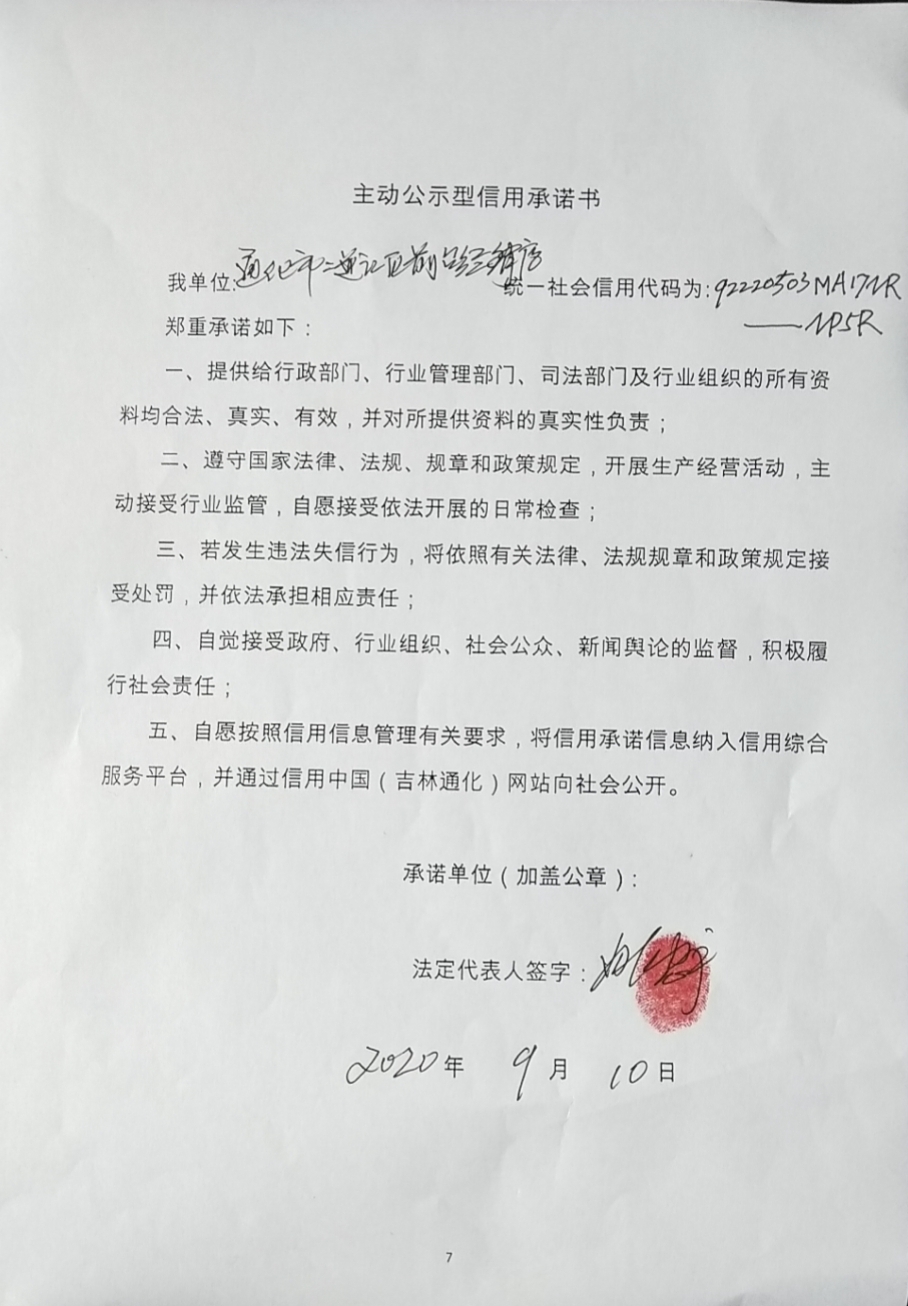 主动公示型信用承诺书
我单位:通化市二道江区 统一社会信用代码为:92220503MA17
郑重承诺如下：
一、提供给行政部门、行业管理部门、司法部门及行业组织的所有资
料均合法、真实、有效，并对所提供资料的真实性负责；
二、遵守国家法律、法规、规章和政策规定，开展生产经营活动，主
动接受行业监管，自愿接受依法开展的日常检查；
三、若发生违法失信行为，将依照有关法律、法规规章和政策规定接
受处罚，并依法承担相应责任；
四、自觉接受政府、行业组织、社会公众、新闻舆论的监督，积极履
行社会责任；
五、自愿按照信用信息管理有关要求，将信用承诺信息纳入信用综合
服务平台，并通过信用中国（吉林通化）网站向社会公开。
承诺单位（加盖公章）:
法定代表人签字：
2020年 9月 10日
7